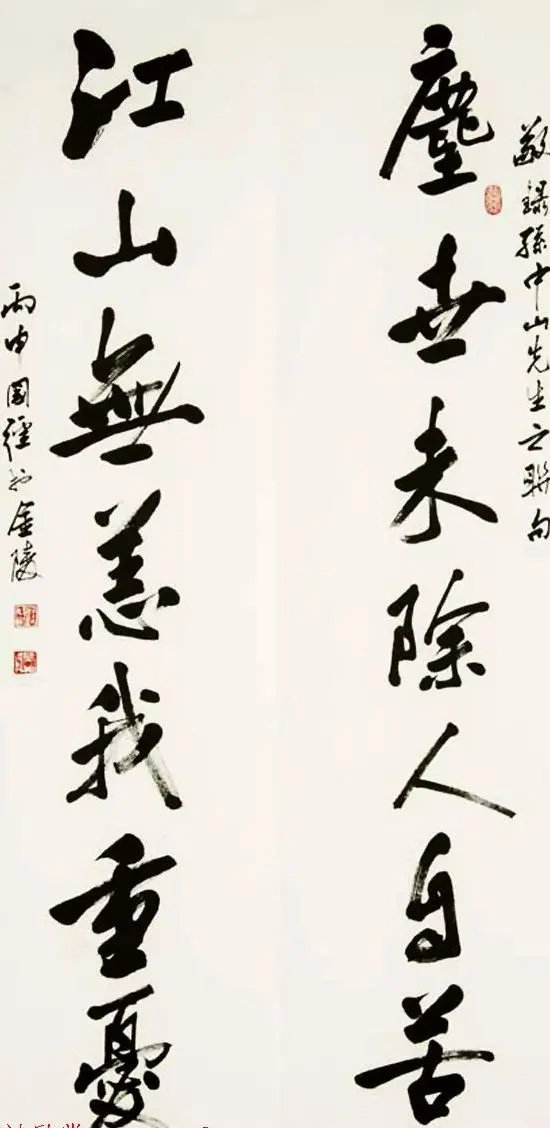 敬錄孫中山先生之聯句
塵世未除人自苦
江山無恙我重憂
丙申國經於金陵